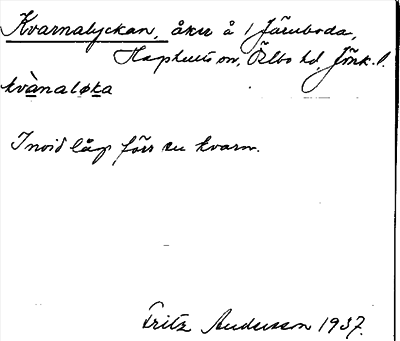 Kvarnalyckan, åker å 1 Järnboda,
Hagshults sn, Östbo hd, Jönk. l.
kvànaløka
Invid låg förr en kvarn.
Fritz Andersson 1937.